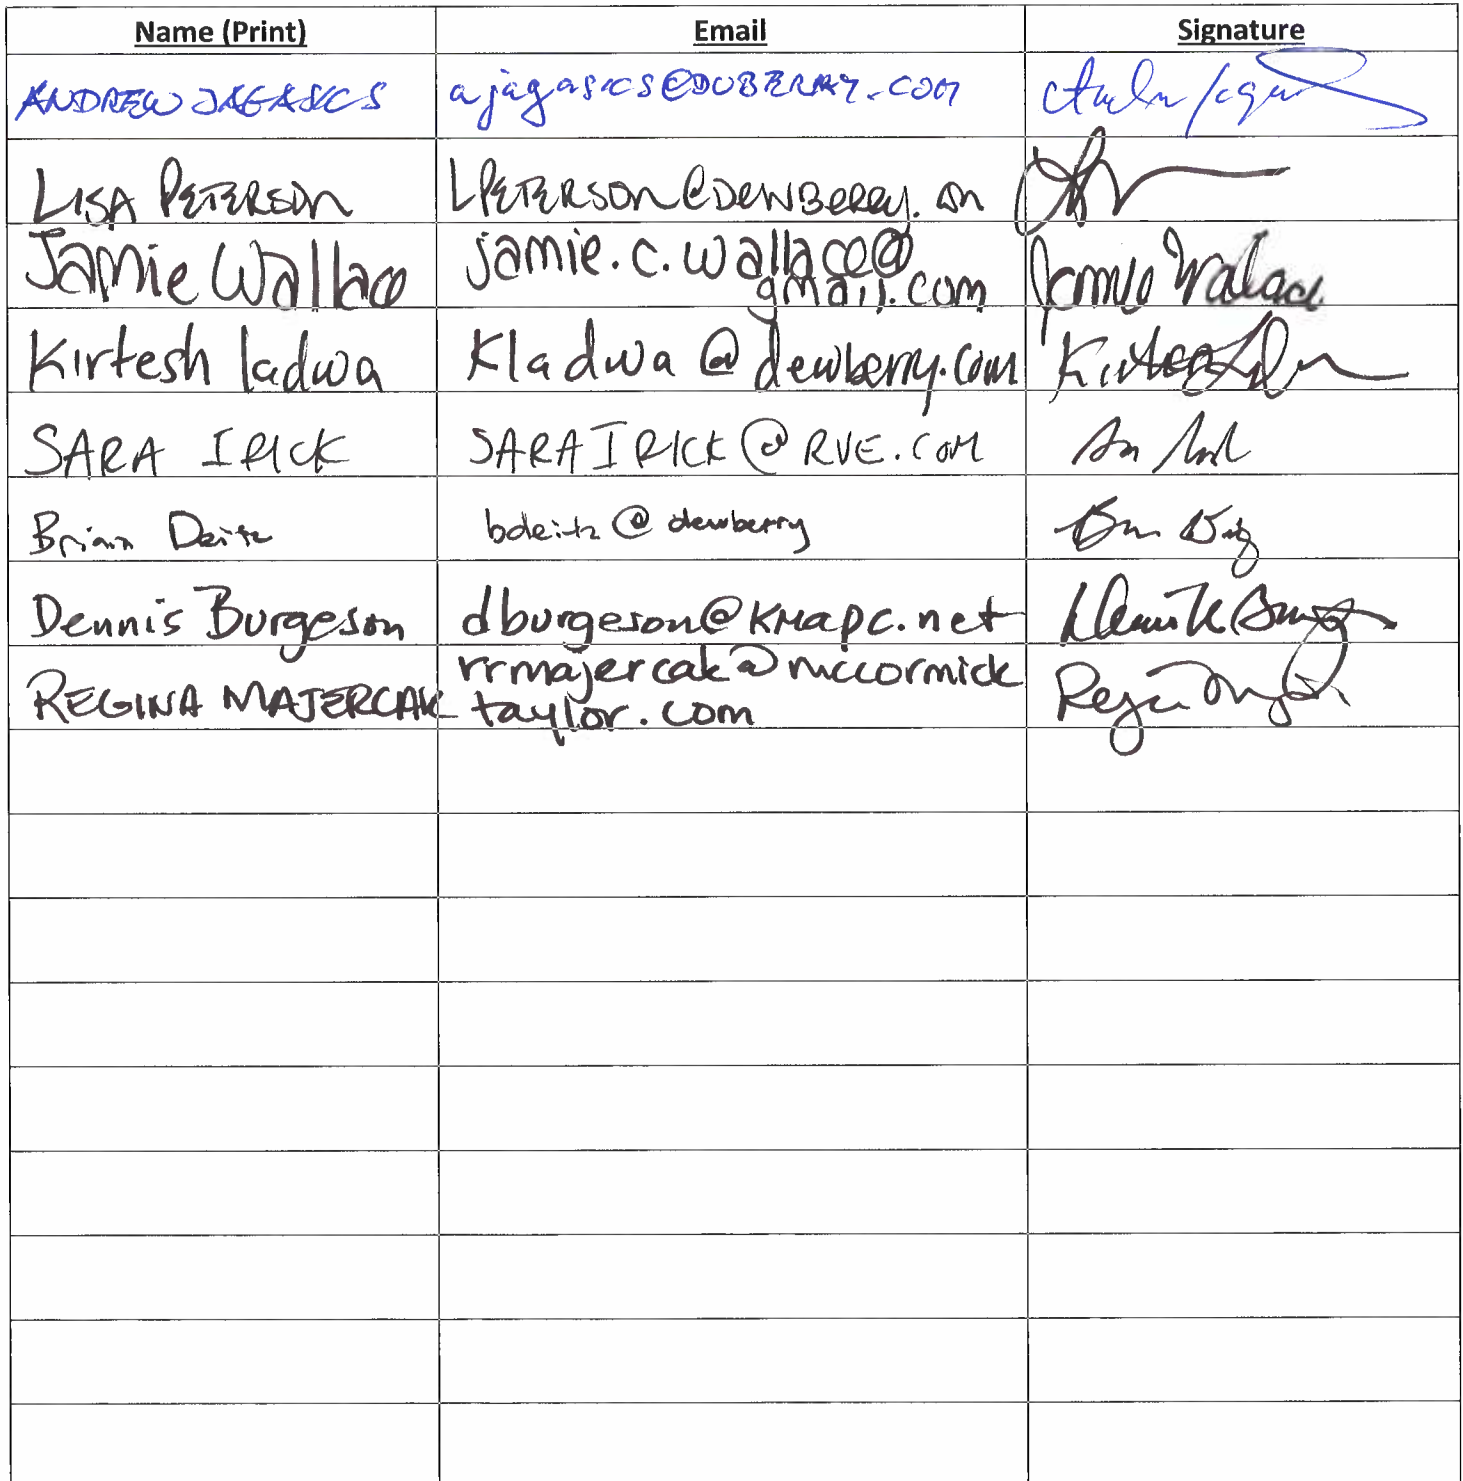 Name (Print) Email Signature
ANDREW JAGASICS ajagasics@DUBERRY.COM
LISA PETERSON LPETERSON@DEWBERRY.com
Jamie Wallace jamie.c.wallace@ Jamie Wallace
gmail.com
Kirtesh ladwa Kladwa@dewberry.com
SARA IRICK SARAIRICK@RVE.COM
Brian Deitz bdeitz@dewberry
Dennis Burgeson dburgeson@KMapc.net
REGINA MAJERCAK rrmajercak@mccormick
taylor.com